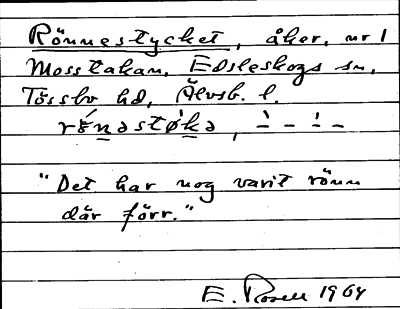 Rönnestycket, åker, nr 1
Mosstakan, Edsleskogs sn,
Tössbo hd, Älvsb. l.
rö́nəstøkə, -́ - -̀ -
"Det har nog varit rönn
där förr."
E. Rosell 1964